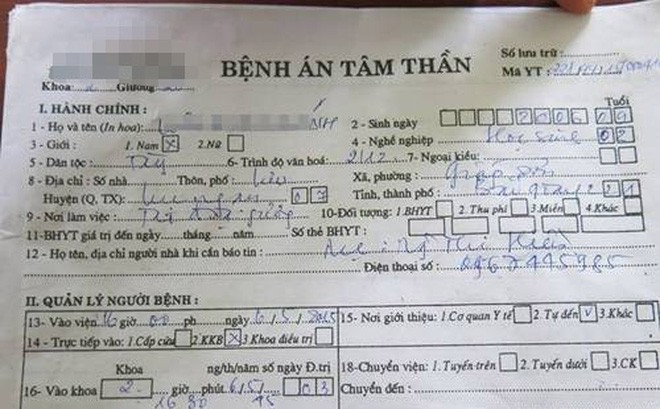 BỆNH ÁN TÂM THẦN
Số lưu trữ:
Mã YT:
Khoa: 2 Giường
I. HÀNH CHÍNH:
Tuổi
1 - Họ và tên (In hoa): 2 - Sinh ngày 2006 09
3 - Giới: 1. Nam X 2. Nữ 4 - Nghề nghiệp Học sinh 02
5 - Dân tộc: Tày 6- Trình độ văn hoá: 2/12 7- Ngoại kiều:
8 - Địa chỉ: Số nhà Thôn, phố: Xã, phường:
Huyện (Q, TX): 07 Tỉnh, thành phố: Bắc Giang 21
9 - Nơi làm việc: 10-Đối tượng: 1.BHYT 2.Thu phí 3.Miễn 4.Khác
11-BHYT giá trị đến ngày tháng năm Số thẻ BHYT:
12 - Họ tên, địa chỉ người nhà khi cần báo tin:
Điện thoại số: 0967445985
II. QUẢN LÝ NGƯỜI BỆNH:
13- Vào viện 16 giờ 00 ph ngày 6/5/2015 15- Nơi giới thiệu: 1.Cơ quan Y tế 2.Tự đến V 3.Khác
14 - Trực tiếp vào: 1.Cấp cứu 2.KKB X 3.Khoa điều trị
Khoa ng/th/năm số ngày Đ.trị 18-Chuyển viện: 1.Tuyến trên 2.Tuyến dưới 3.CK
16- Vào khoa 2 giờ phút 6/5/ 03 Chuyển đến:
16 30 15